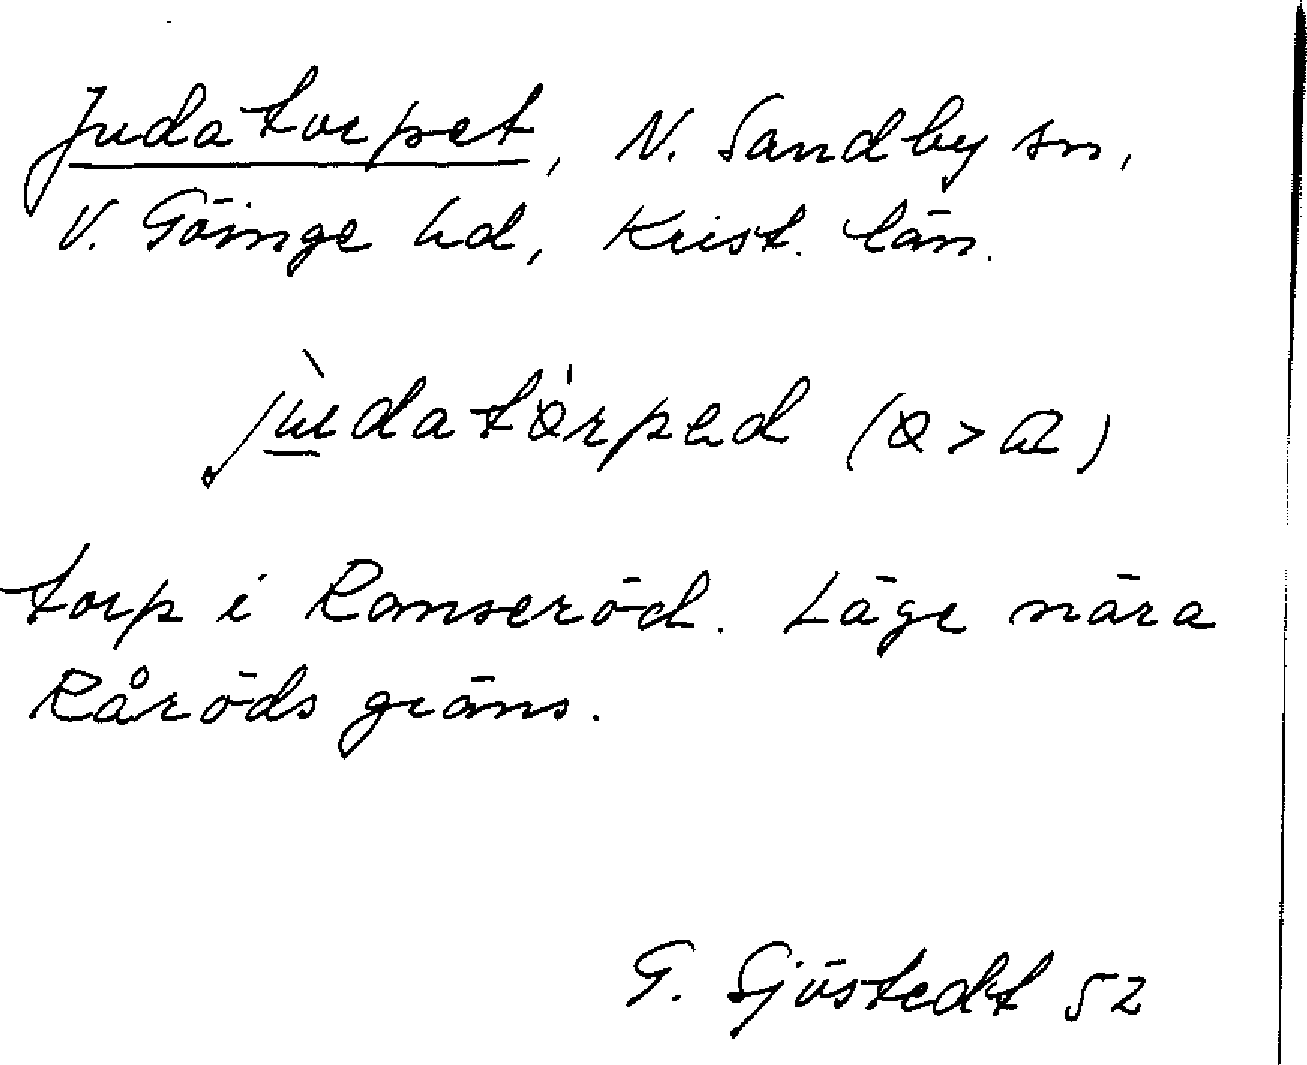 Judatorpet, N. Sandby sn,
V. Göinge hd, Krist. län.
torp i Ranseröd. Läge nära
Råröds gräns.
G. Sjöstedt 52